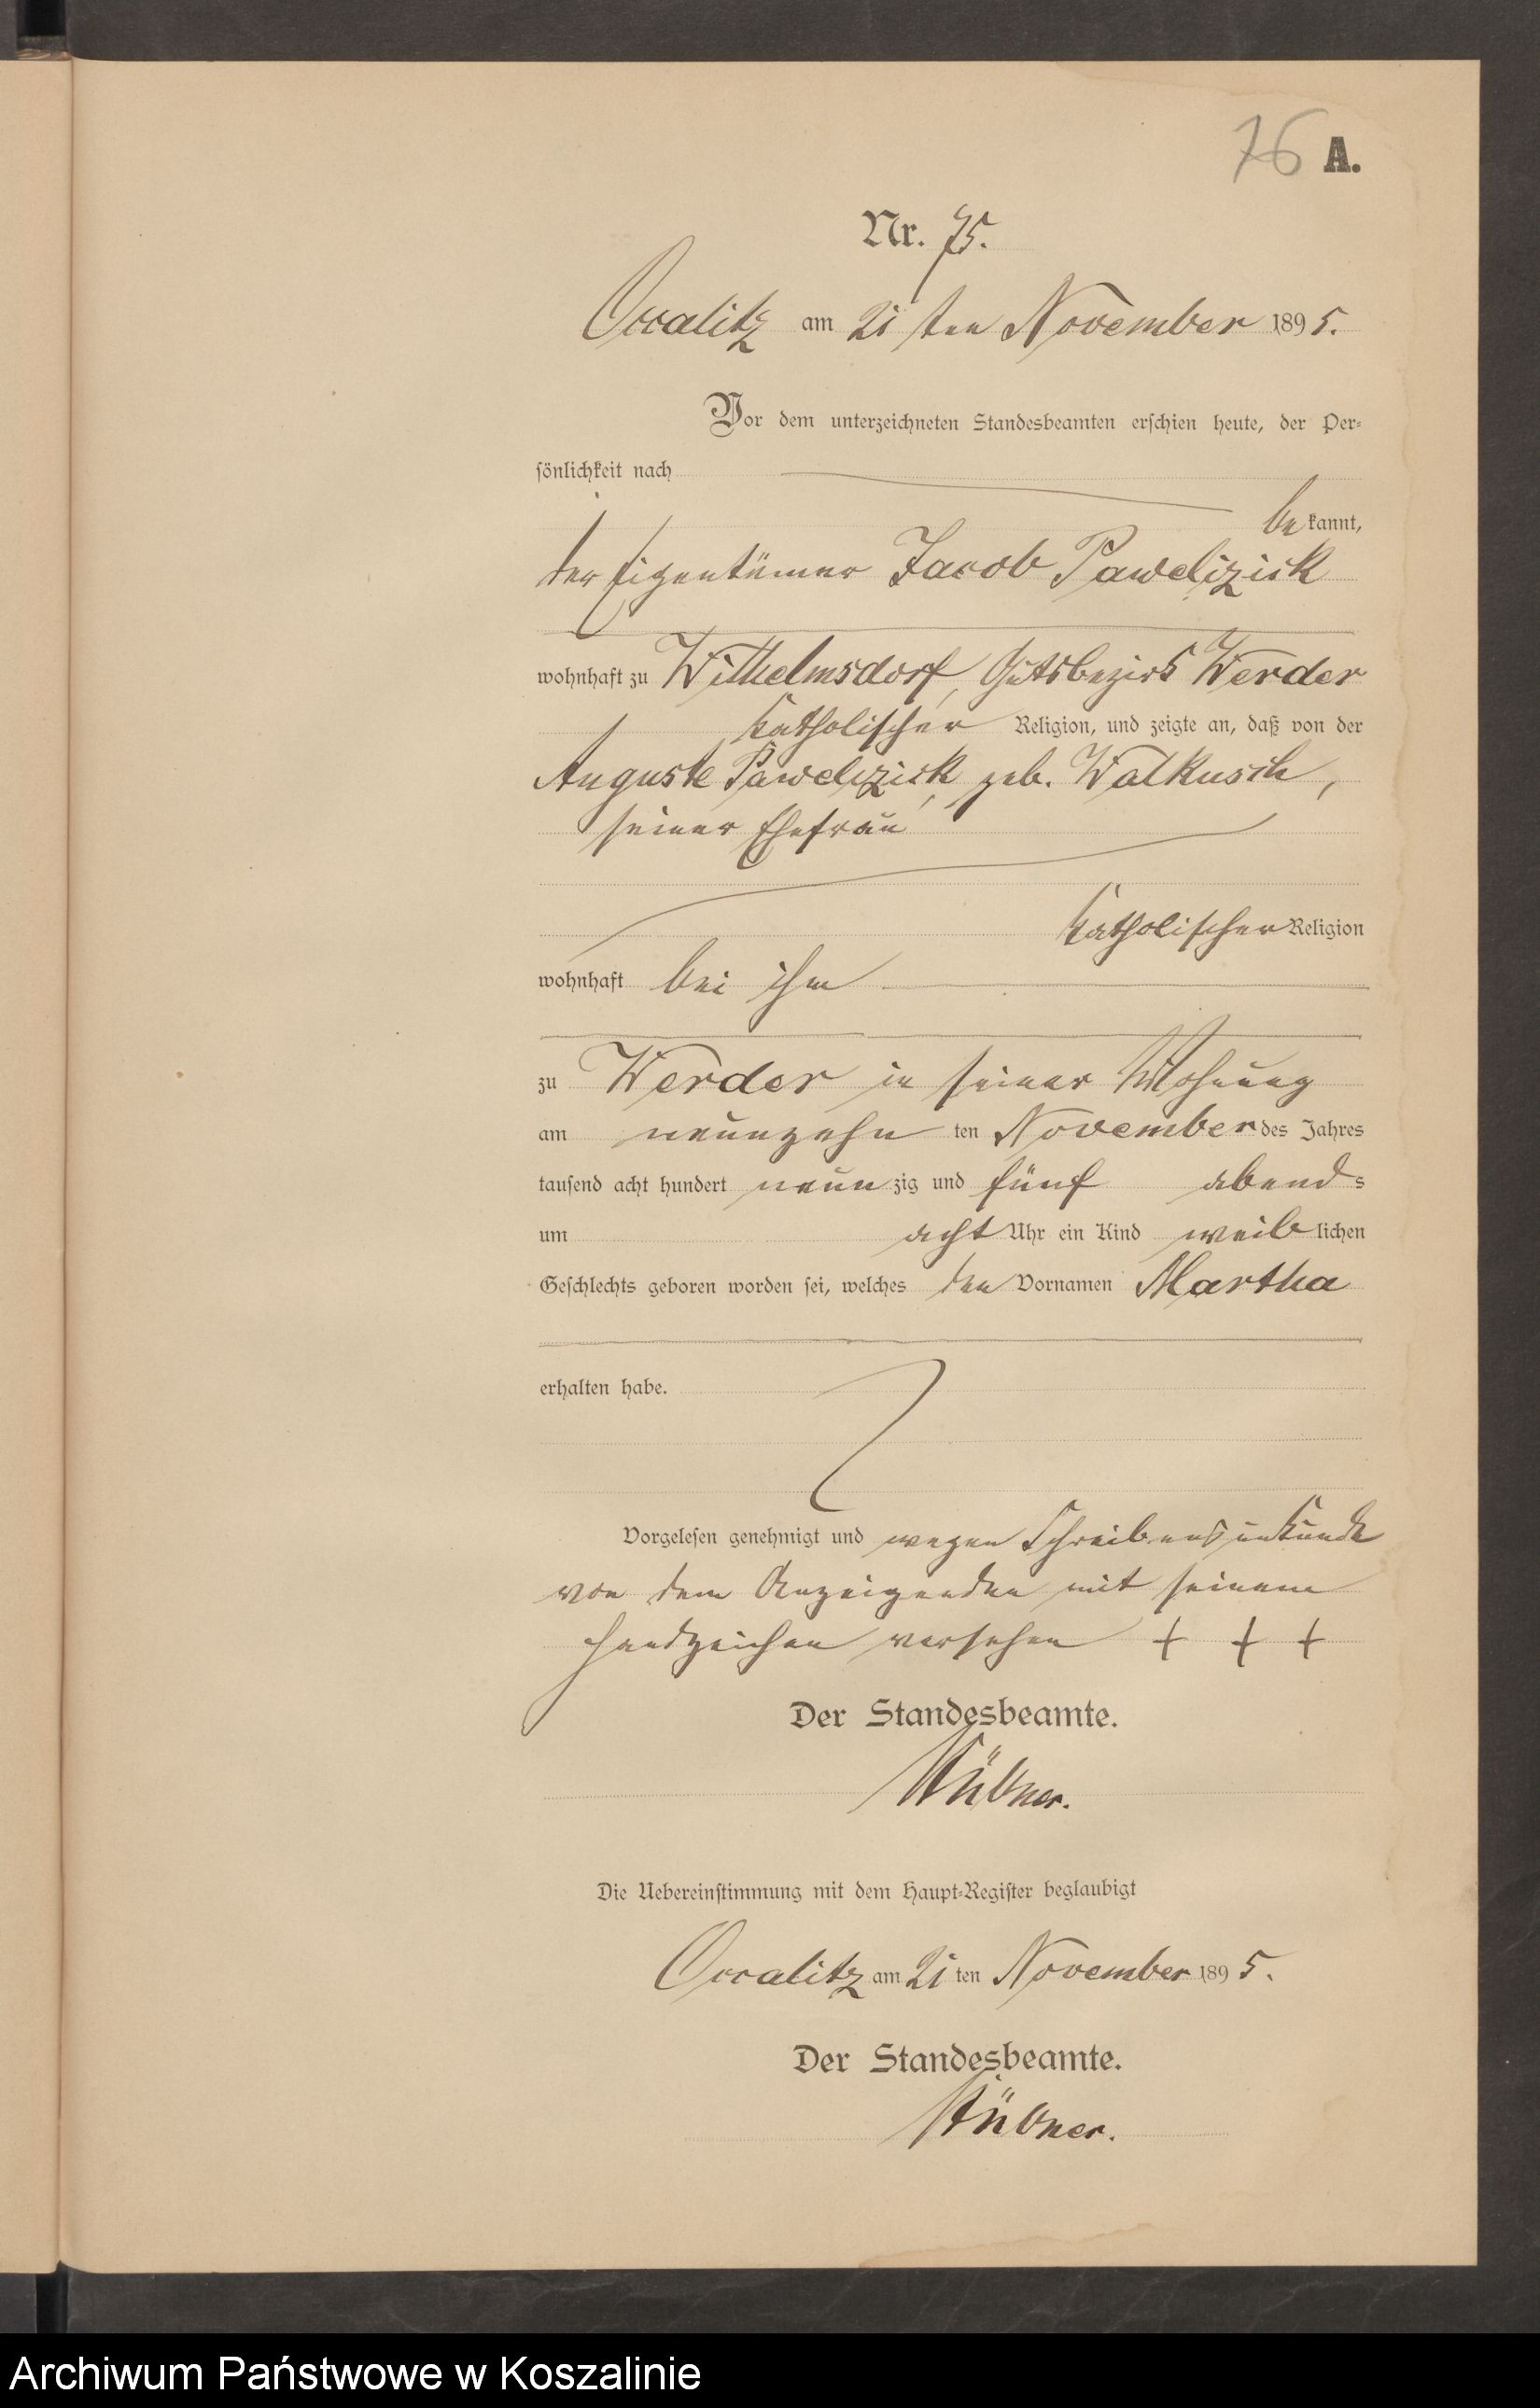 76 A.
Nr. 75.
Occalitz am 21 ten November 1895.
Vor dem unterzeichneten Standesbeamten erschien heute, der Per-
sönlichkeit nach
bekannt,
der Eigentümer Jacob Pawelizick
wohnhaft zu Wilhelmsdorf, Gutsbezirk Werder
katholischer Religion, und zeigte an, daß von der
Auguste Pawelizick, geb. Walkusch,
seiner Ehefrau
katholischer Religion
wohnhaft bei ihm
zu Werder in seiner Wohnung
am neunzehn ten November des Jahres
tausend acht hundert neunzig und fünf abends
um acht Uhr ein Kind weiblichen
Geschlechts geboren worden sei, welches den Vornamen Martha
erhalten habe.
Vorgelesen genehmigt und wegen Schreibensunkunde
von dem Anzeigenden mit seinem
Handzeichen versehen + + +
Der Standesbeamte.
Hübner.
Die Uebereinstimmung mit dem Haupt-Register beglaubigt
Occalitz am 21 ten November 1895.
Der Standesbeamte.
Hübner.
Archiwum Państwowe w Koszalinie